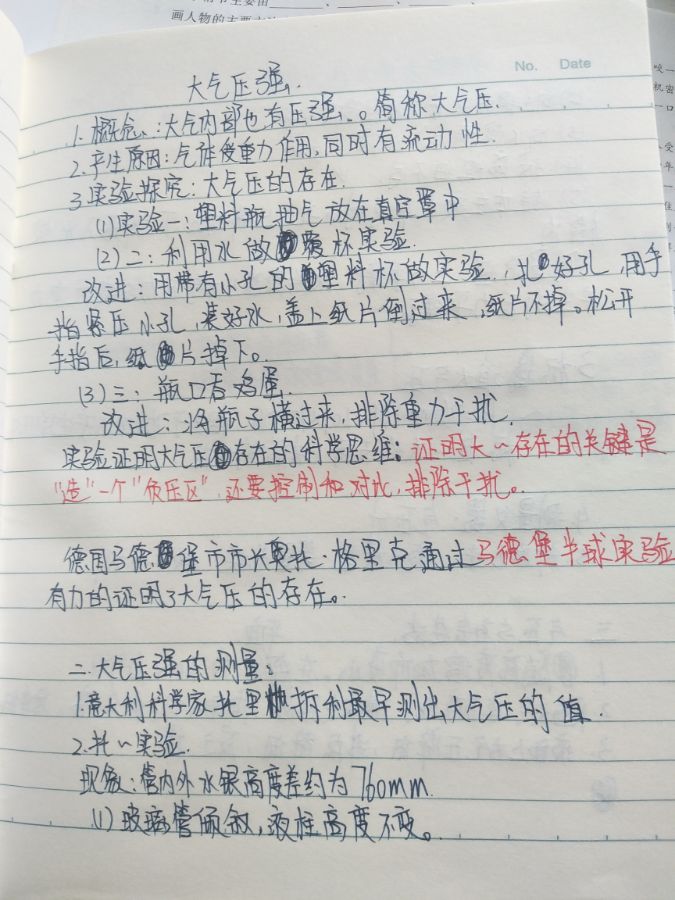 画人物的主要
No. Date
大气压强.
1. 概念:大气内部也有压强。简称大气压.
2.产生原因:气体受重力作用,同时有流动性.
3.实验探究:大气压的存在.
(1)实验一:塑料瓶抽气放在真空罩中
(2)二:利用水做覆杯实验.
改进:用带有小孔的塑料杯做实验.扎好孔,用手
指紧压小孔,装好水,盖上纸片倒过来,纸片不掉。松开
手指后,纸片掉下。
(3)三:瓶口吞鸡蛋.
改进:将瓶子横过来,排除重力干扰.
实验证明大气压存在的科学思维:证明大~存在的关键是
"造"一个"负压区",还要控制和对比,排除干扰。
德国马德堡市市长奥托·格里克通过马德堡半球实验
有力的证明了大气压的存在。
二.大气压强的测量:
1.意大利科学家托里拆利最早测出大气压的值.
2.托~实验.
现象:管内外水银高度差约为760mm.
(1)玻璃管倾斜,液柱高度不变。